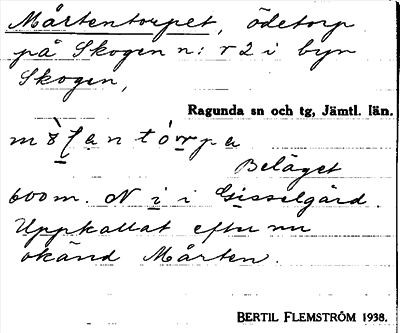 Mårtentorpet, ödetorp
på Skogen n: r 2 i byn
Skogen,
Ragunda sn och tg, Jämtl. län.
Beläget
600 m. N i i Gisselgård.
Uppkallat efter nu
okänd Mårten.
BERTIL FLEMSTRÖM 1938.